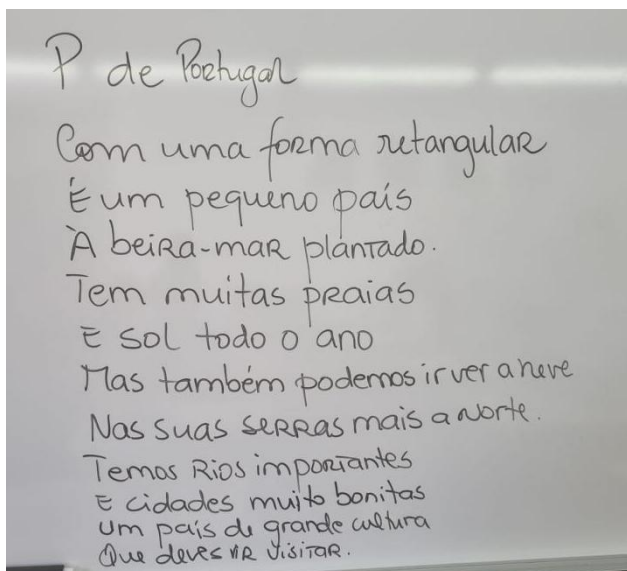 P de Portugal
Com uma forma retangular
É um pequeno país
À beira-mar plantado.
Tem muitas praias
E sol todo o ano
Mas também podemos ir ver a neve
Nas suas serras mais a Norte.
Temos Rios importantes
E cidades muito bonitas
Um país de grande cultura
Que deves vir visitar.